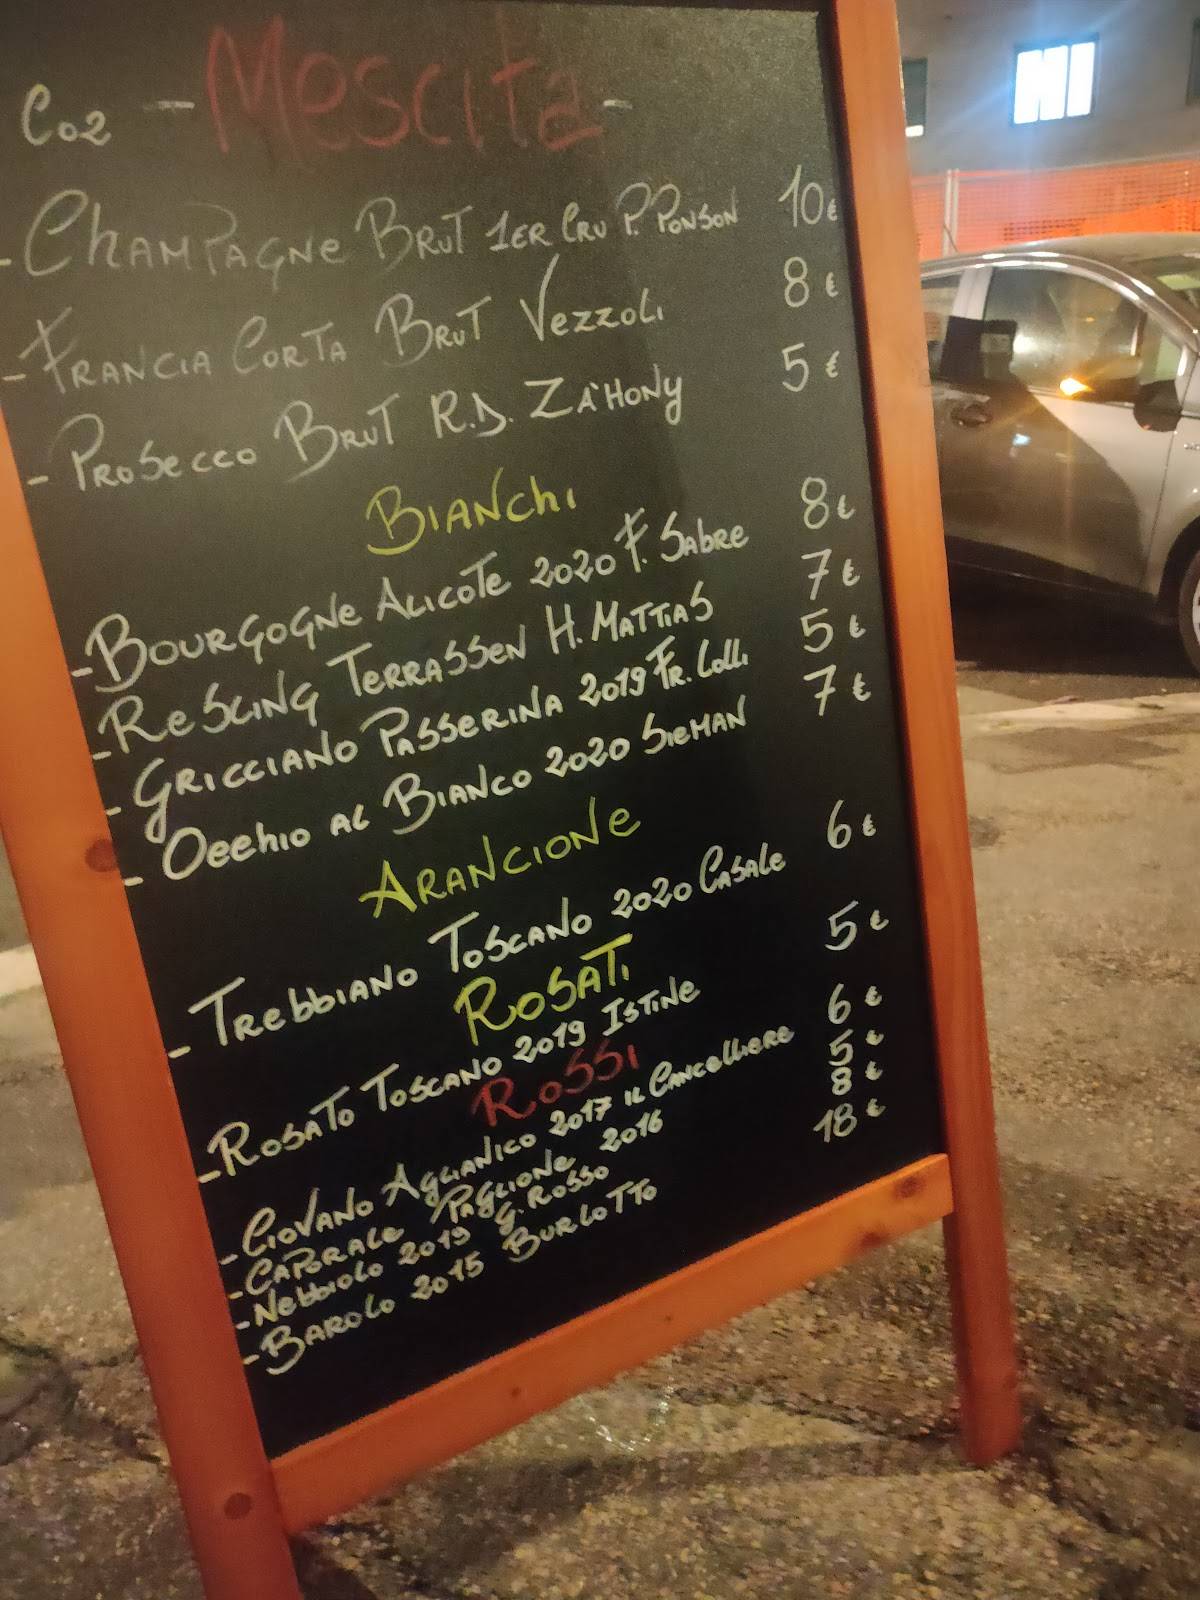 Co2 - Mescita -
- Champagne Brut 1er Cru P. Ponson 10€
- Francia Corta Brut Vezzoli 8€
- Prosecco Brut R.D. Zà'hony 5€
Bianchi
- Bourgogne Alicote 2020 F. Sabre 8€
- Resling Terrassen H. Mattias 7€
- Gricciano Passerina 2019 Fr. Lolli 5€
- Occhio al Bianco 2020 Sieman 7€
Arancione
- Trebbiano Toscano 2020 Casale 6€
Rosati
- Rosato Toscano 2019 Istine 5€
Rossi
- Giovano Aglianico 2017 il Cancelliere 6€
- Caporale Paglione 2016 5€
- Nebbiolo 2019 G. Rosso 8€
- Barolo 2015 Burlotto 18€